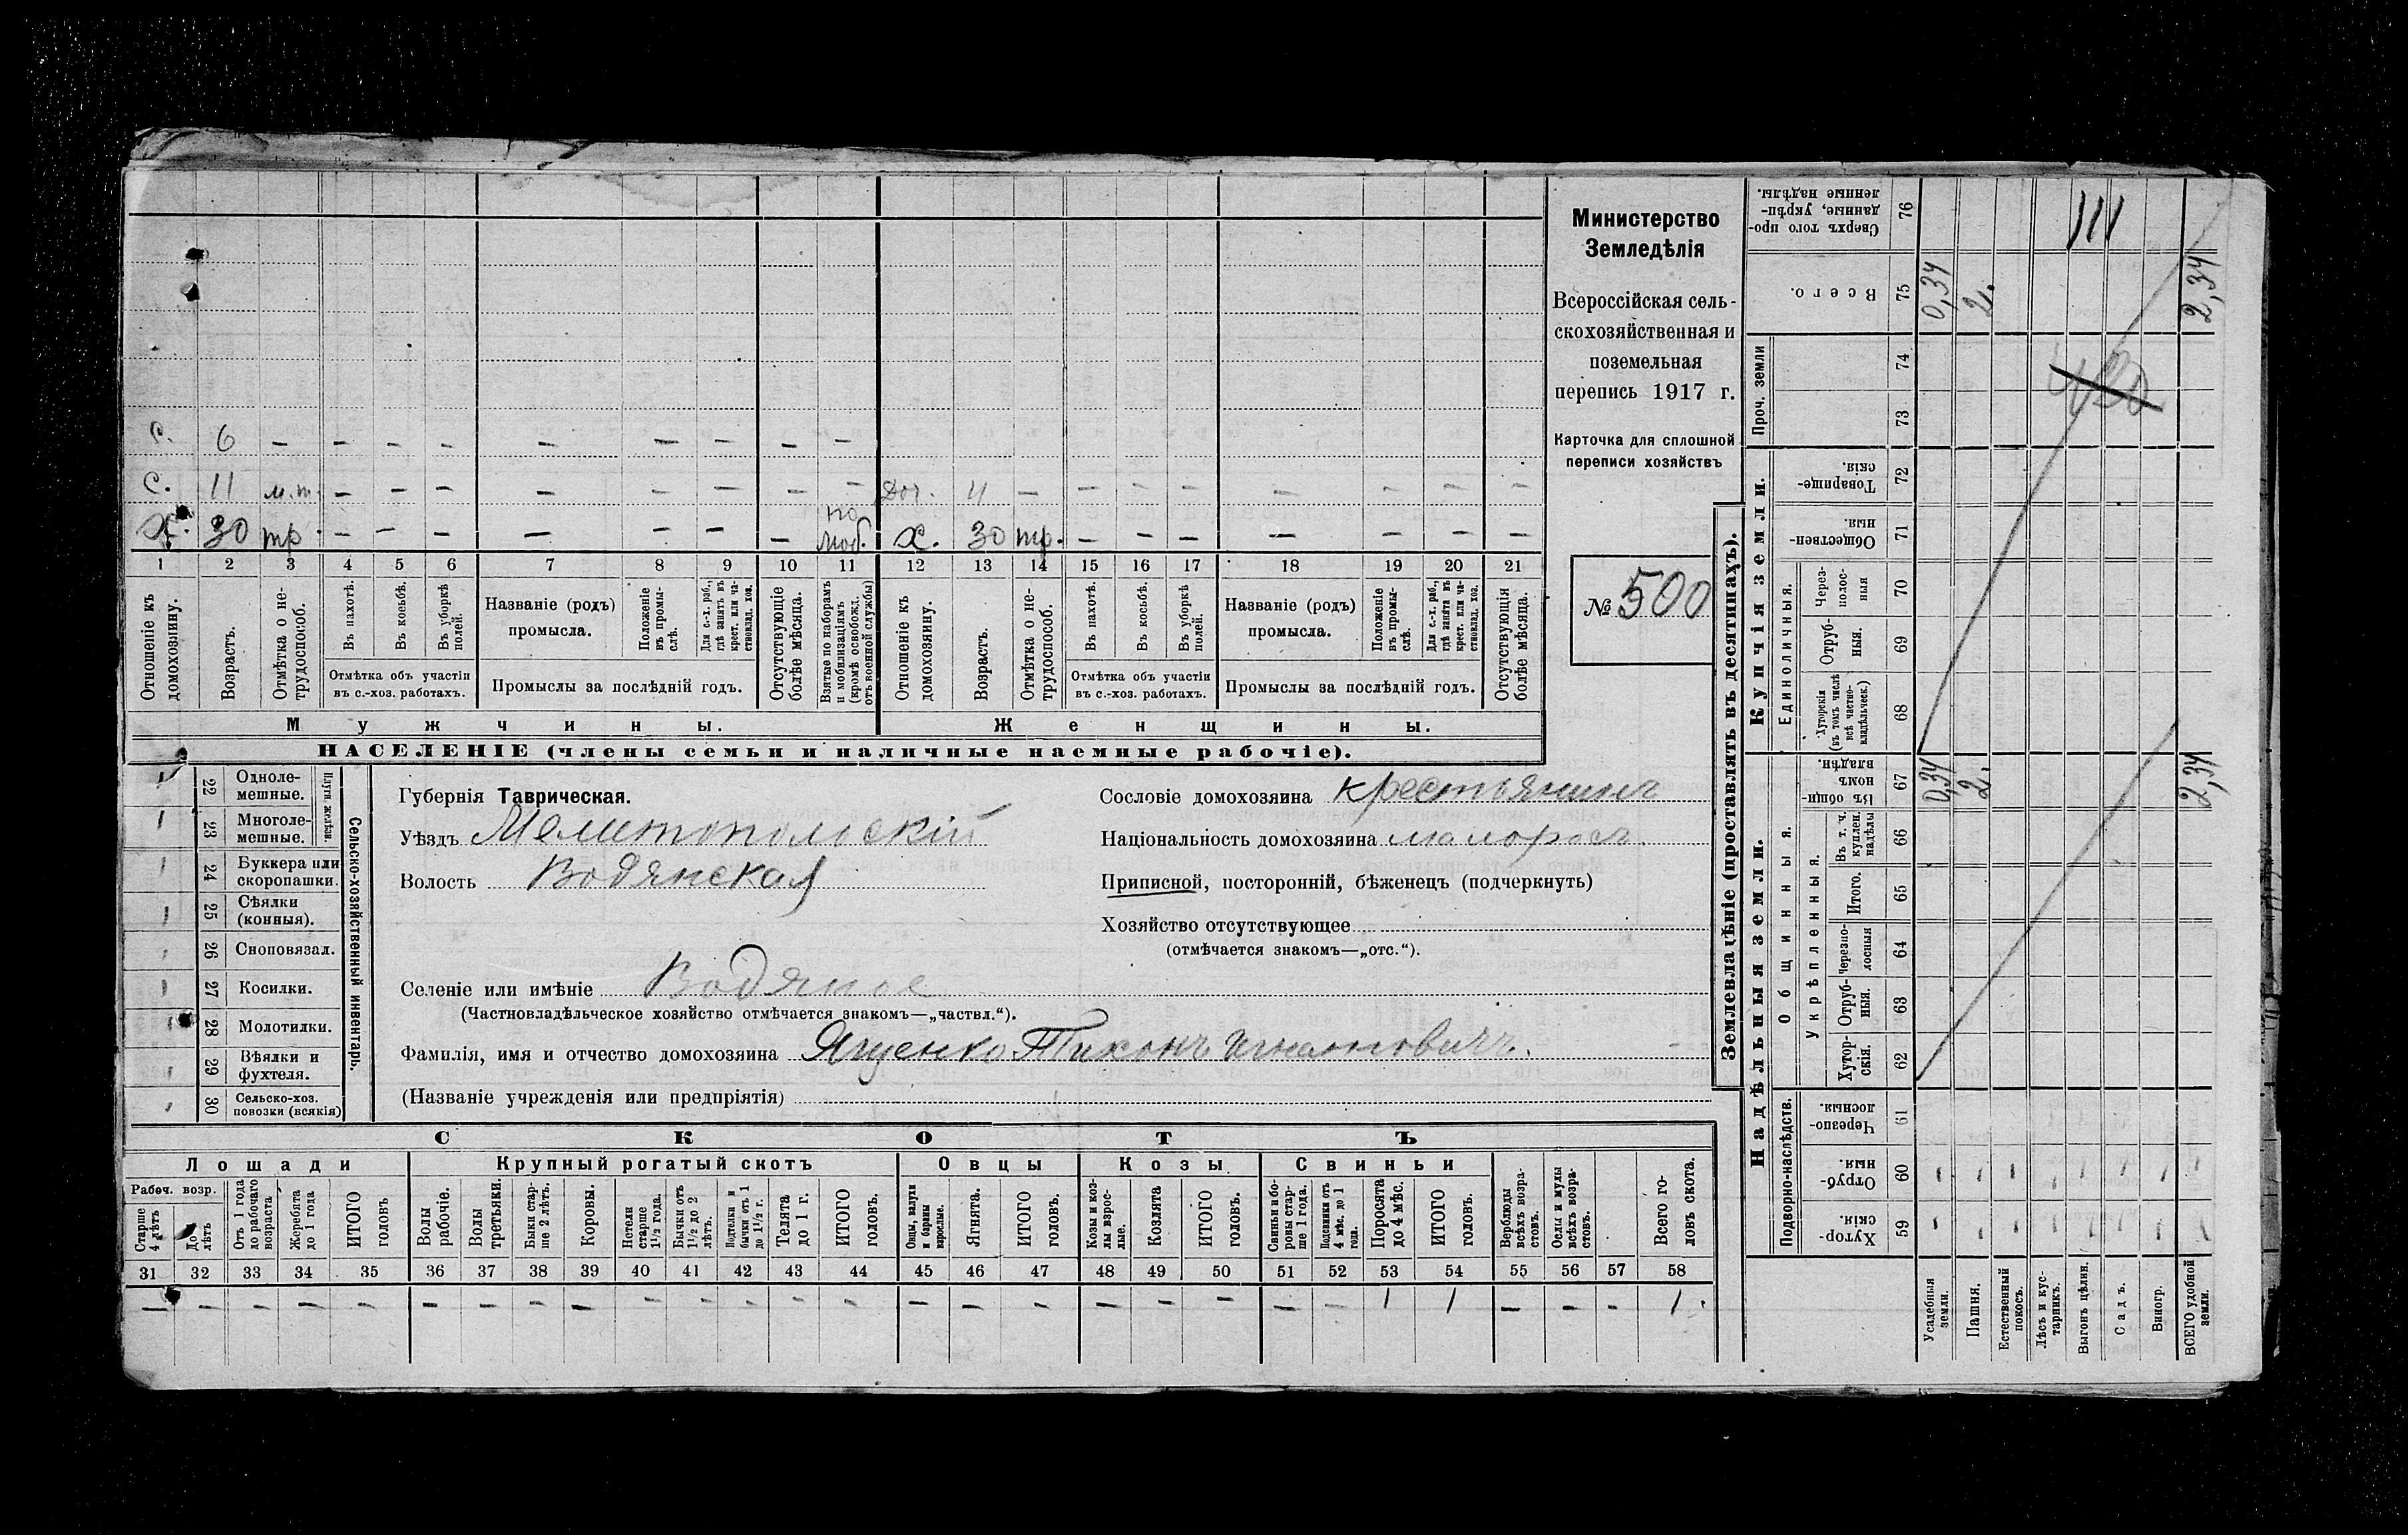 С. 6 — — — — — — — — —
С. 11 м.т. — — — — — — — — Доч. 4 — — — — — — — —
Х. 30 тр. — — — — — — — по моб. Х. 30 тр. — — — — — — —
1 2 3 4 5 6 7 8 9 10 11 12 13 14 15 16 17 18 19 20 21
Отношеніе къ домохозяину.
Возрастъ.
Отмѣтка о не-
трудоспособ.
Въ пахотѣ.
Въ косьбѣ.
Въ уборкѣ
полей.
Отмѣтка объ участіи
въ с.-хоз. работахъ.
Названіе (родъ)
промысла.
Положеніе
въ промы-
слѣ.
Для с.-х. раб.,
гдѣ занятъ въ
крест. или ча-
стновлад. хоз.
Промыслы за послѣдній годъ.
Отсутствующіе
болѣе мѣсяца.
Взятые по наборамъ
и мобилизаціямъ
(кромѣ освобожд.
отъ военной службы)
Отношеніе къ
домохозяину.
Возрастъ.
Отмѣтка о не-
трудоспособ.
Въ пахотѣ.
Въ косьбѣ.
Въ уборкѣ
полей.
Отмѣтка объ участіи
въ с.-хоз. работахъ.
Названіе (родъ)
промысла.
Положеніе
въ промы-
слѣ.
Для с.-х. раб.,
гдѣ занята въ
крест. или ча-
стновлад. хоз.
Промыслы за послѣдній годъ.
Отсутствующія
болѣе мѣсяца.
Мужчины. Женщины.
НАСЕЛЕНІЕ (члены семьи и наличные наемные рабочіе).
Министерство
Земледѣлія
Всероссійская сель-
скохозяйственная и
поземельная
перепись 1917 г.
Карточка для сплошной
переписи хозяйствъ
№ 500
Сельско-хозяйственный инвентарь.
22 Одноле-
мешные.
23 Многоле-
мешные.
24 Буккера или
скоропашки.
25 Сѣялки
(конныя).
26 Сноповязал.
27 Косилки.
28 Молотилки.
29 Вѣялки и
фухтеля.
30 Сельско-хоз.
повозки (всякія)
Губернія Таврическая.
Уѣздъ Мелитопольскій
Волость Водянская
Селеніе или имѣніе Водяное
(Частновладѣльческое хозяйство отмѣчается знакомъ—„частвл.“).
Фамилія, имя и отчество домохозяина Ященко Тихонъ Игнатовичъ.
(Названіе учрежденія или предпріятія)
Сословіе домохозяина крестьянинъ
Національность домохозяина малоросъ.
Приписной, посторонній, бѣженецъ (подчеркнуть)
Хозяйство отсутствующее
(отмѣчается знакомъ—„отс.“).
СКОТЪ
Лошади Крупный рогатый скотъ Овцы Козы Свиньи
Рабоч. возр.
Старше
4 лѣтъ
До
лѣтъ
Отъ 1 года
до рабочаго
возраста
Жеребята
до 1 года
ИТОГО
головъ
Волы
рабочіе.
Волы
третьяки.
Быки стар-
ше 2 лѣтъ.
Коровы.
Нетели
старше
1½ года.
Бычки отъ
1½ до 2
лѣтъ.
Подтелки и
бычки отъ 1
до 1½ г.
Телята
до 1 г.
ИТОГО
головъ.
Овцы, валухи
и бараны
взрослые.
Ягнята.
ИТОГО
головъ.
Козы и коз-
лы взрос-
лые.
Козлята
ИТОГО
головъ.
Свиньи и бо-
ровы стар-
ше 1 года.
Подсвинки отъ
4 мѣс. до 1
года.
Поросята
до 4 мѣс.
ИТОГО
головъ.
Верблюды
всѣхъ возра-
стовъ.
Ослы и мулы
всѣхъ возра-
стовъ.
Всего го-
ловъ скота.
31 32 33 34 35 36 37 38 39 40 41 42 43 44 45 46 47 48 49 50 51 52 53 54 55 56 57 58
— — — — — — — — — — — — — — — — — — — — — — 1 1 — — — 1.
Землевладѣніе (проставлять въ десятинахъ).
Надѣльныя земли. Купчія земли. Проч. земли
Подворно-наслѣдств. Общинныя. Единоличныя.
Укрѣпленныя.
Хутор-
скія. 59
Отруб-
ныя. 60
Черезпо-
лосныя. 61
Хутор-
скія. 62
Отруб-
ныя. 63
Черезпо-
лосныя 64
Итого. 65
Въ т. ч.
куплен.
надѣлы 66
Въ общин-
номъ
владѣн. 67
Хуторскія
(въ томъ числѣ
всѣ частно-
владѣльческ.) 68
Отруб-
ныя. 69
Через-
полос-
ныя 70
Обществен-
ныя. 71
Товарище-
скія. 72
73
74
Всего. 75
Сверхъ того про-
данные, укрѣп-
ленные надѣлы. 76
Усадебныя
земли. 0,34 0,34
Пашня. 2. 2.
Естественный
покосъ.
Лѣсъ и кус-
тарникъ.
Выгонъ цѣлин.
Садъ.
Виногр.
ВСЕГО удобной
земли. 2,34 2,34